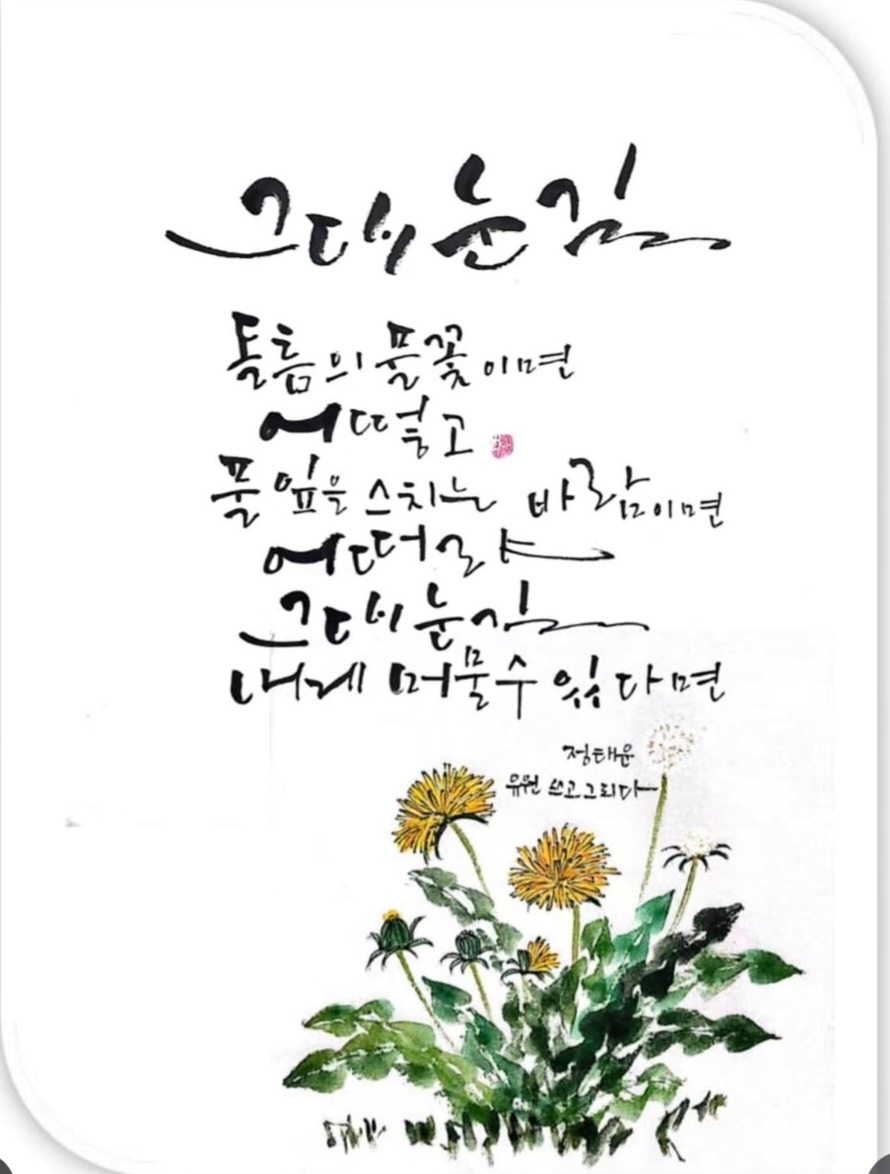 그대 눈길
돌틈의 풀꽃이면
어떻고
풀잎을 스치는 바람이면
어떠랴
그대 눈길
내게 머물 수 있다면
정태운
유원 쓰고그리다